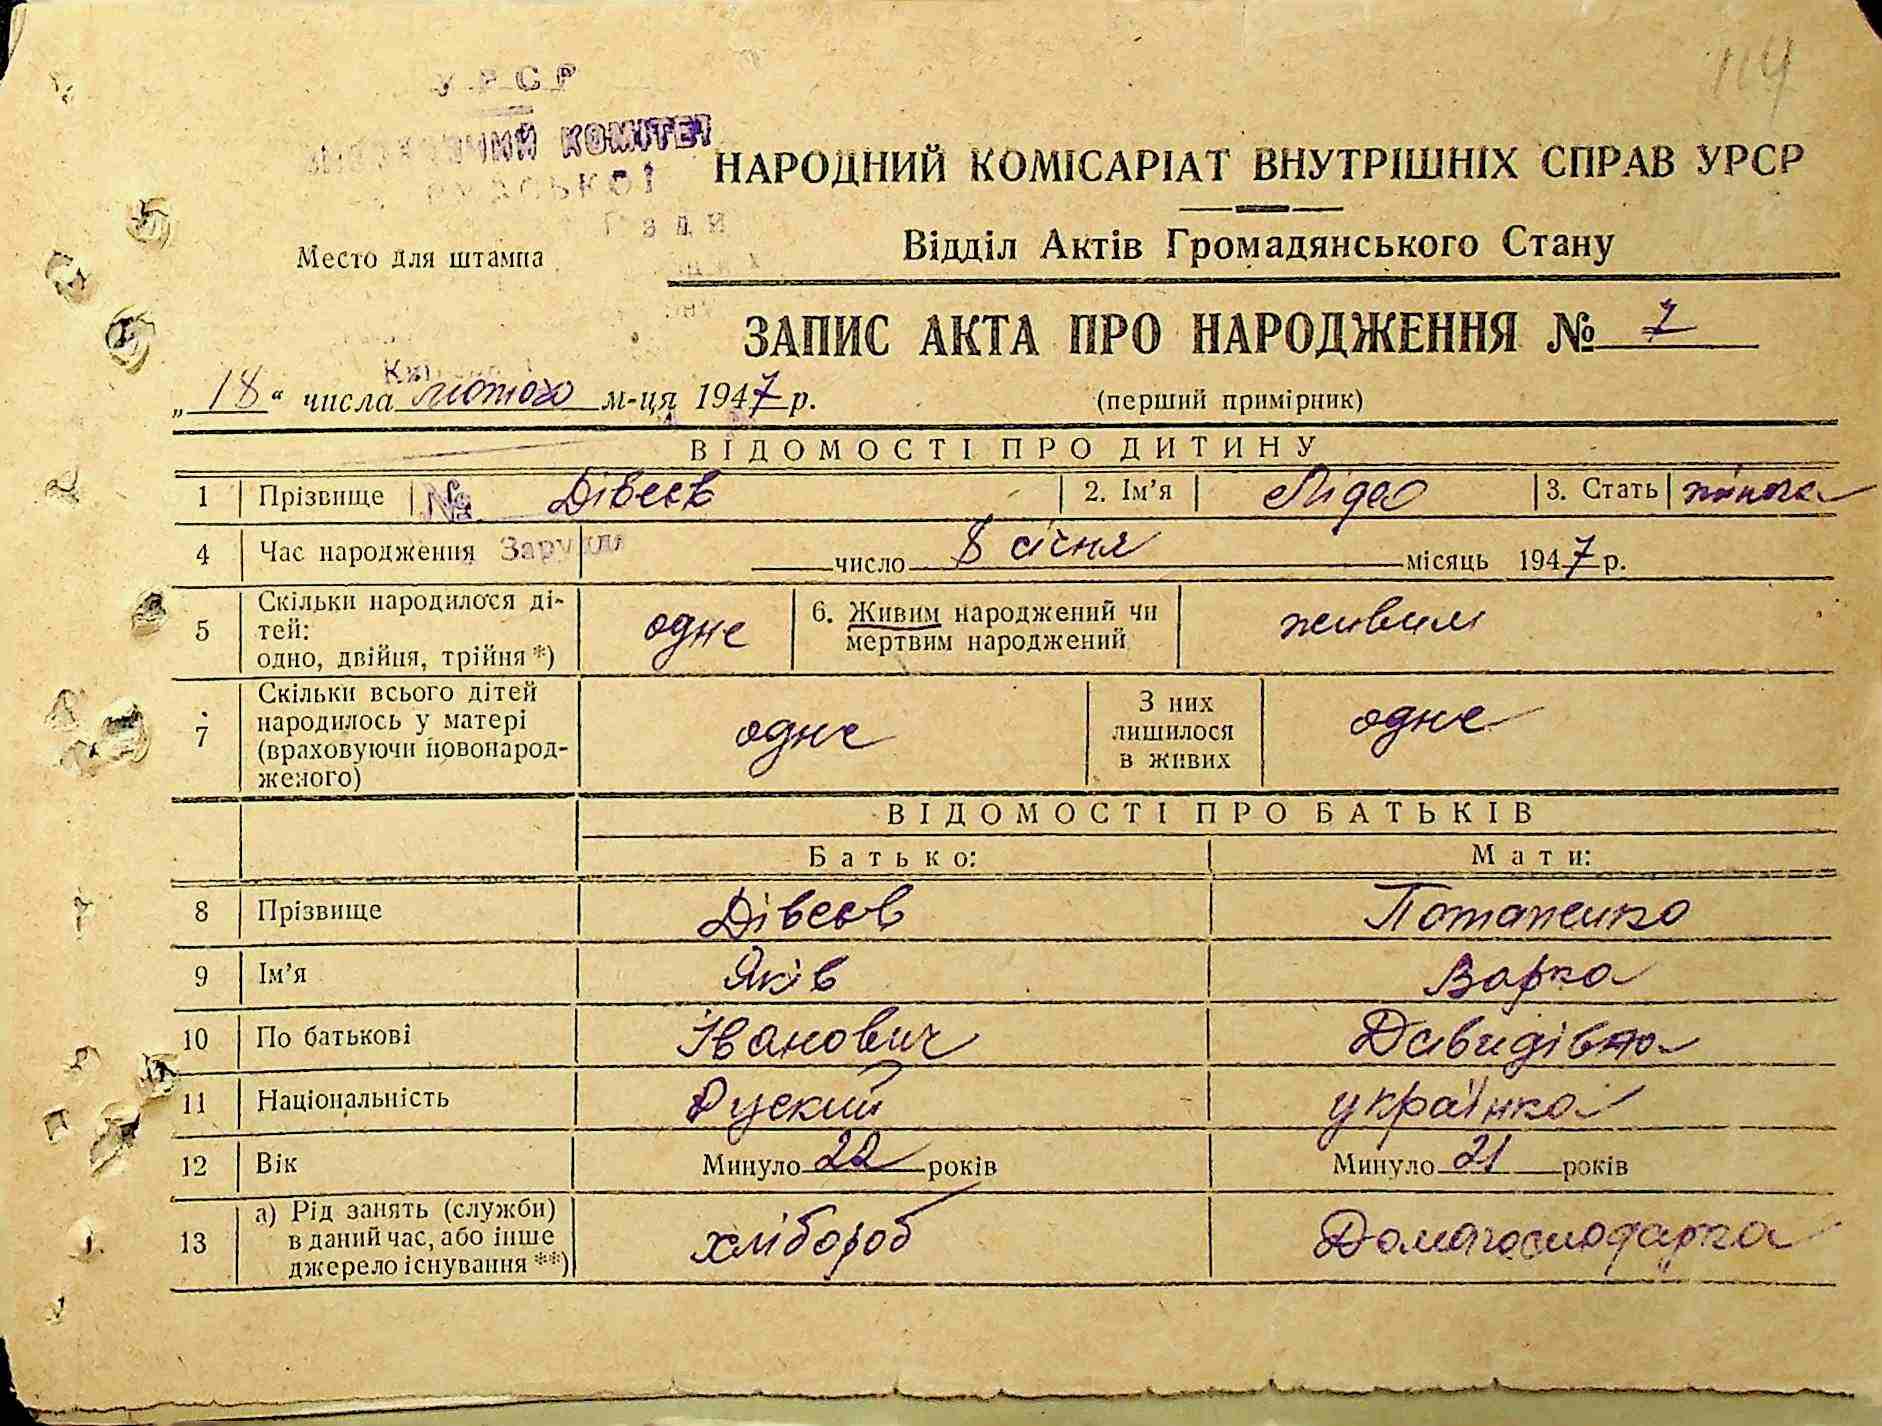 114
УРСР
КОМІТЕТ
НАРОДНИЙ КОМІСАРІАТ ВНУТРІШНІХ СПРАВ УРСР
Место для штампа
Відділ Актів Громадянського Стану
ЗАПИС АКТА ПРО НАРОДЖЕННЯ № 7
„18“ числа лютого м-ця 1947 р. (перший примірник)
ВІДОМОСТІ ПРО ДИТИНУ
1 Прізвище № Дівеєв 2. Ім’я Ліда 3. Стать жіноча
4 Час народження число 8 січня місяць 1947 р.
5 Скільки народилося ді-
тей:
одно, двійня, трійня *)
одне
6. Живим народжений чи
мертвим народжений
живим
7 Скільки всього дітей
народилось у матері
(враховуючи новонарод-
женого)
одне
З них
лишилося
в живих
одне
ВІДОМОСТІ ПРО БАТЬКІВ
Батько: Мати:
8 Прізвище Дівеєв Потапенко
9 Ім’я Яків Варка
10 По батькові Іванович Давидівна
11 Національність Руский українка
12 Вік Минуло 22 років Минуло 21 років
13 а) Рід занять (служби)
в даний час, або інше
джерело існування **)
хлібороб Домогосподарка